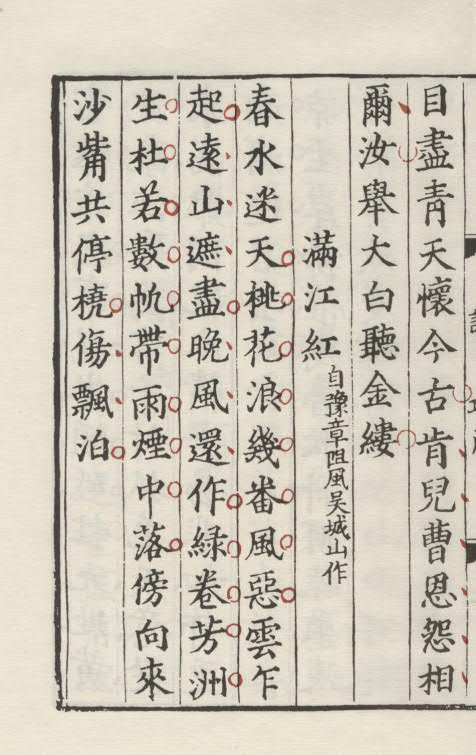 目盡青天懷今古肯兒曹恩怨相
爾汝舉大白聽金縷
滿江紅 自豫章阻風吴城山作
春水迷天桃花浪幾番風惡雲乍
起遠山遮盡晚風還作綠卷芳洲
生杜若數帆帶雨煙中落傍向來
沙觜共停橈傷飄泊